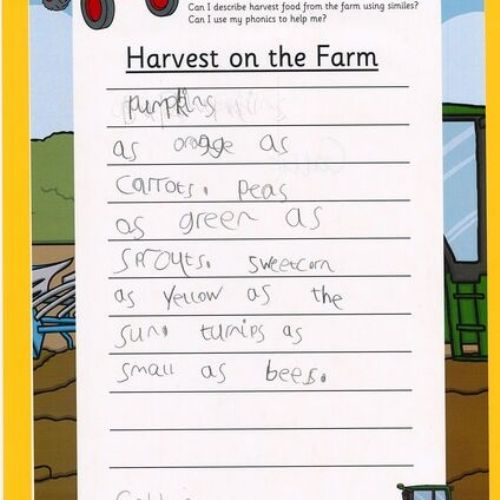 Can I describe harvest food from the farm using similes?
Can I use my phonics to help me?
Harvest on the Farm
pumpkins
as oragge as
carrots. peas
as green as
sprouts. sweetcorn
as yellow as the
sun. turnips as
small as bees.